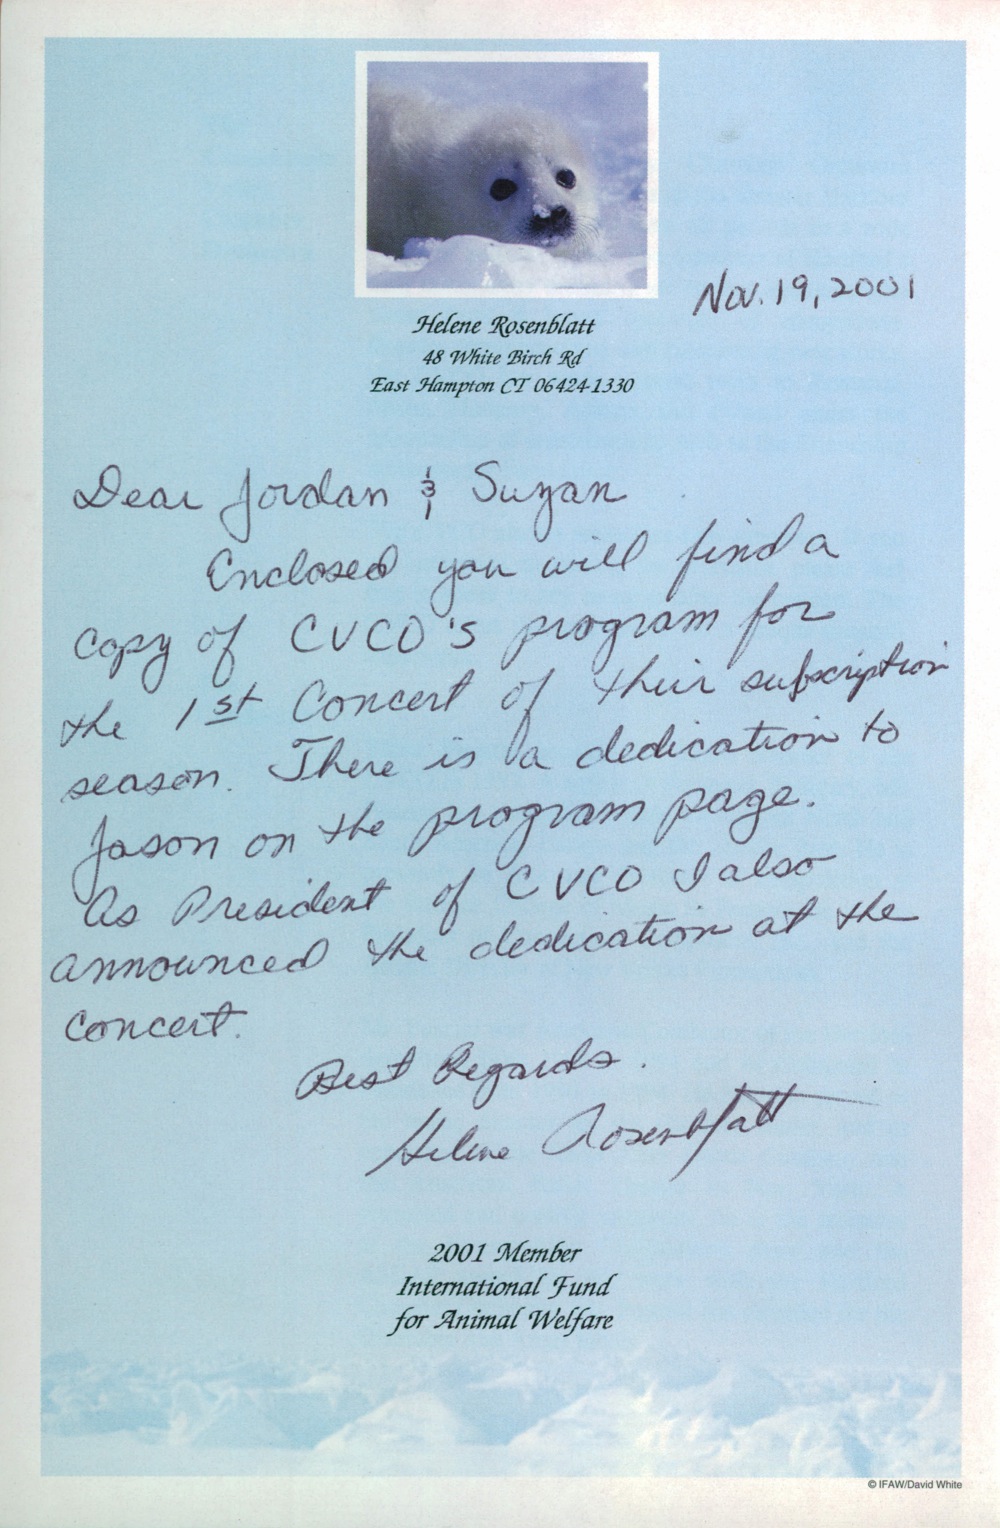 Nov. 19, 2001
Helene Rosenblatt
48 White Birch Rd
East Hampton CT 06424-1330
Dear Jordan & Suzan
Enclosed you will find a
copy of CVCO's program for
the 1st Concert of their subscription
season. There is a dedication to
Jason on the program page.
As President of CVCO I also
announced the dedication at the
concert.
Best Regards.
Helene Rosenblatt
2001 Member
International Fund
for Animal Welfare
© IFAW/David White